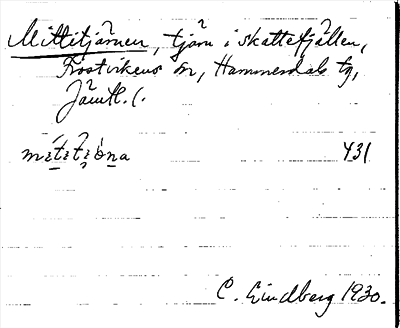 Mittitjärnen, tjärn i skattefjällen,
Frostvikens sn, Hammerdals tg,
Jämtl. l.
431
C. Lindberg 1930.